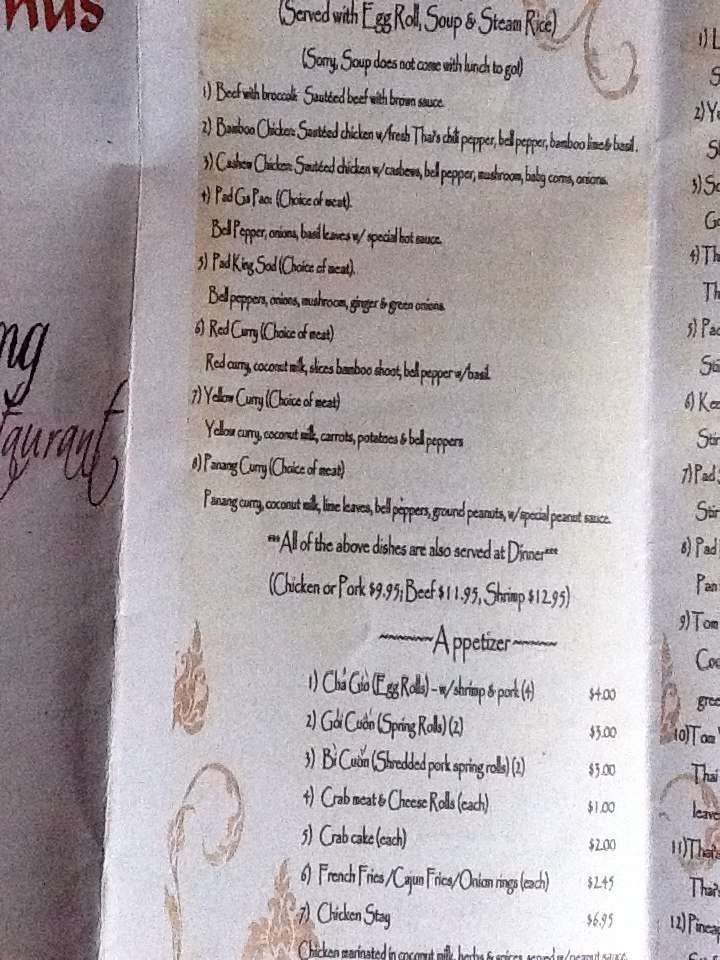 nus
ng
taurant
(Served with Egg Roll, Soup & Steam Rice)
(Sorry, Soup does not come with lunch to go!)
1) Beef with broccoli: Sautéed beef with brown sauce.
2) Bamboo Chicken: Sautéed chicken w/fresh Thai's chili pepper, bell pepper, bamboo lime & basil.
3) Cashew Chicken: Sautéed chicken w/cashews, bell pepper, mushroom, baby corns, onions.
4) Pad Ga Pao: (Choice of meat).
Bell Pepper, onions, basil leaves w/ special hot sauce.
5) Pad King Sod (Choice of meat).
Bell peppers, onions, mushroom, ginger & green onions.
6) Red Curry (Choice of meat)
Red curry, coconut milk, slices bamboo shoot, bell pepper w/basil.
7) Yellow Curry (Choice of meat)
Yellow curry, coconut milk, carrots, potatoes & bell peppers
8) Panang Curry (Choice of meat)
Panang curry, coconut milk, lime leaves, bell peppers, ground peanuts, w/special peanut sauce.
***All of the above dishes are also served at Dinner***
(Chicken or Pork $9.95; Beef $11.95, Shrimp $12.95)
~~~~~~Appetizer~~~~~~
1) Chả Giò (Egg Rolls) - w/shrimp & pork (4) $4.00
2) Gỏi Cuốn (Spring Rolls) (2) $3.00
3) Bì Cuốn (Shredded pork spring rolls) (2) $3.00
4) Crab meat & Cheese Rolls (each) $1.00
5) Crab cake (each) $2.00
6) French Fries /Cajun Fries/Onion rings (each) $2.45
7) Chicken Stay $6.95
Chicken marinated in coconut milk, herbs & spices, served w/peanut sauce.
1) L
S
2) Ye
Sl
3) So
Go
4) Th
Th
5) Pad
Sti
6) Kee
Stir
7) Pad
Stir
8) Pad
Pan
9) Tom
Coc
gree
10) Tom
Thai
leave
11) Thai's
Thai's
12) Pineap